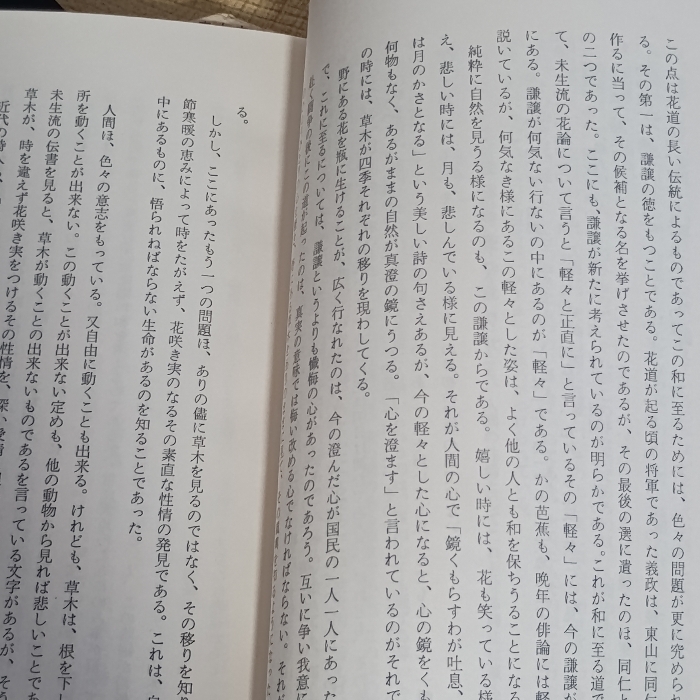 この点は花道の長い伝統によるものであってこの和に至るためには、色々の問題が更に究められ
る。その第一は、謙譲の徳をもつことである。花道が起る頃の将軍であった義政は、東山に同
作るに当って、その候補となる名を挙げさせたのであるが、その最後の選に遺ったのは、同仁
の二つであった。ここにも、謙譲が新たに考えられているのが明らかである。これが和に至る道
て、未生流の花論について言うと「軽々と正直に」と言っているその「軽々」には、今の謙譲が
にある。謙譲が何気ない行ないの中にあるのが「軽々」である。かの芭蕉も、晩年の俳論には軽
説いているが、何気なき様にあるこの軽々とした姿は、よく他の人とも和を保ちうることにな
純粋に自然を見うる様になるのも、この謙譲からである。嬉しい時には、花も笑っている様
え、悲しい時には、月も、悲しんでいる様に見える。それが人間の心で「鏡くもらすわが吐息、
は月のかさとなる」という美しい詩の句さえあるが、今の軽々とした心になると、心の鏡をくも
何物もなく、あるがままの自然が真澄の鏡にうつる。「心を澄ます」と言われているのがそれで
の時には、草木が四季それぞれの移りを現わしてくる。
野にある花を瓶に生けることが、広く行なわれたのは、今の澄んだ心が国民の一人一人にあった
で、これに至るについては、謙譲というよりも懺悔の心があったのであろう。互いに争い我意に
の後にこの道が起ったのは、真実の意味では悔い改める心でなければならない。それ
る。
しかし、ここにあったもう一つの問題は、ありの儘に草木を見るのではなく、その移りを知り
節寒暖の恵みによって時をたがえず、花咲き実のなるその素直な性情の発見である。これは、自
中にあるものに、悟られねばならない生命があるのを知ることであった。
人間は、色々の意志をもっている。又自由に動くことも出来る。けれども、草木は、根を下し
所を動くことが出来ない。この動くことが出来ない定めも、他の動物から見れば悲しいことであ
未生流の伝書を見ると、草木が動くことの出来ないものであるを言っている文字があるが、そう
草木が、時を違えず花咲き実をつけるその性情を、深い愛情
近代の詩人